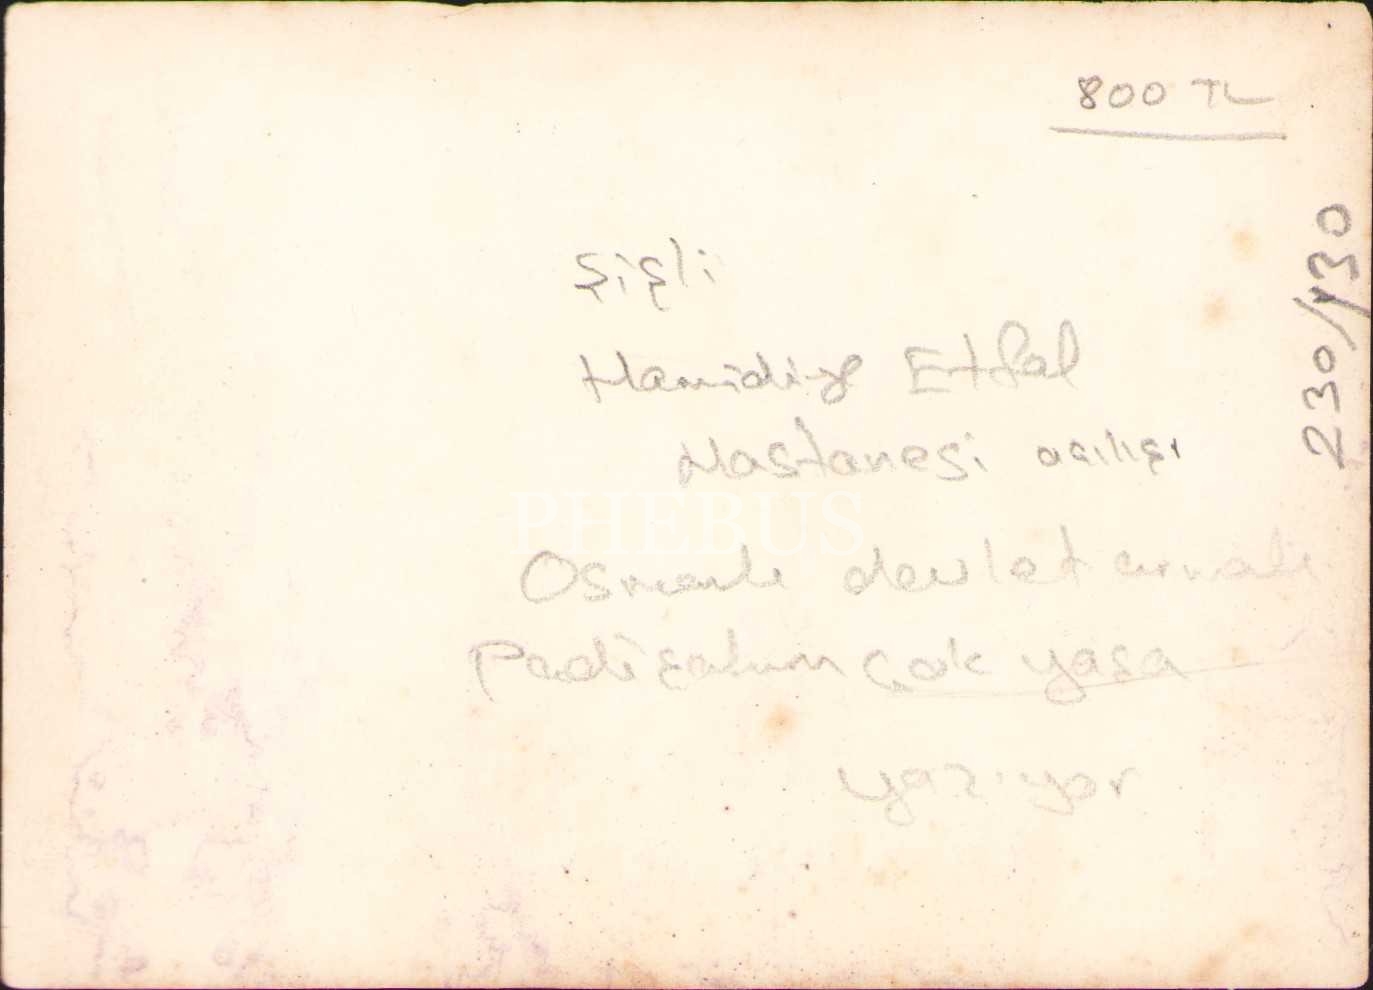 800 TL
230/130
Şişli
Hamidiye Etfal
Hastanesi açılışı
PHEBUS
Osmanlı devlet arması
Padişahım çok yaşa
yazıyor